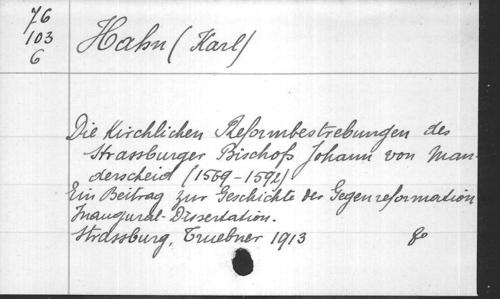 76
103
6
Hahn (Karl)
Die Kirchlichen Reformbestrebungen des
Strassburger Bischofs Johann von Man-
derscheid (1569-1592)
Ein Beitrag zur Geschichte der Gegenreformation
Inaugural-Dissertation.
Strassburg, Truebner 1913 8o